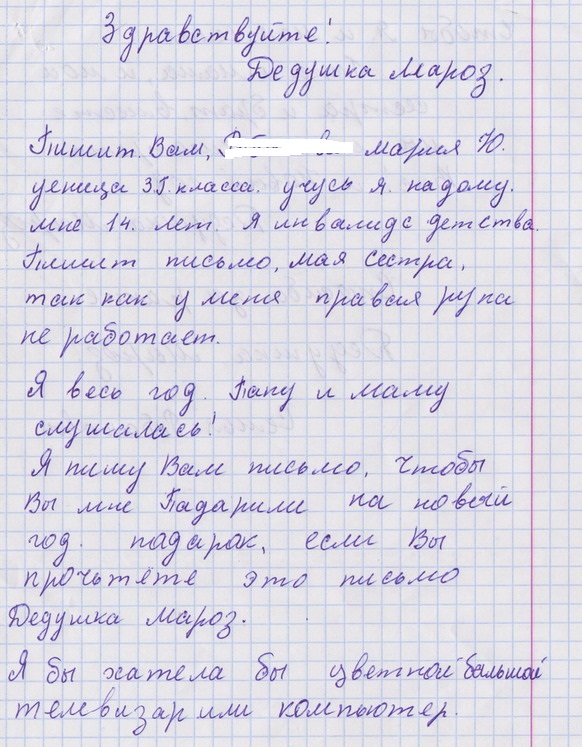 Здравствуйте!
Дедушка Мароз.
Пишит Вам, мария Ю.
уеница 3Г. класса. учусь я. надому.
мне 14. лет. я инвалидс детства.
Пишит письмо, мая сестра,
так как у меня правая рупа
не работает.
Я весь год. Папу и маму
слушалась!
Я пишу Вам письмо, чтобы
Вы мне Падарили на новый
год. падарак, если Вы
прочьтёте это письмо
Дедушка Мароз.
Я бы хатела бы цветной бальшой
телевизар или компьютер.